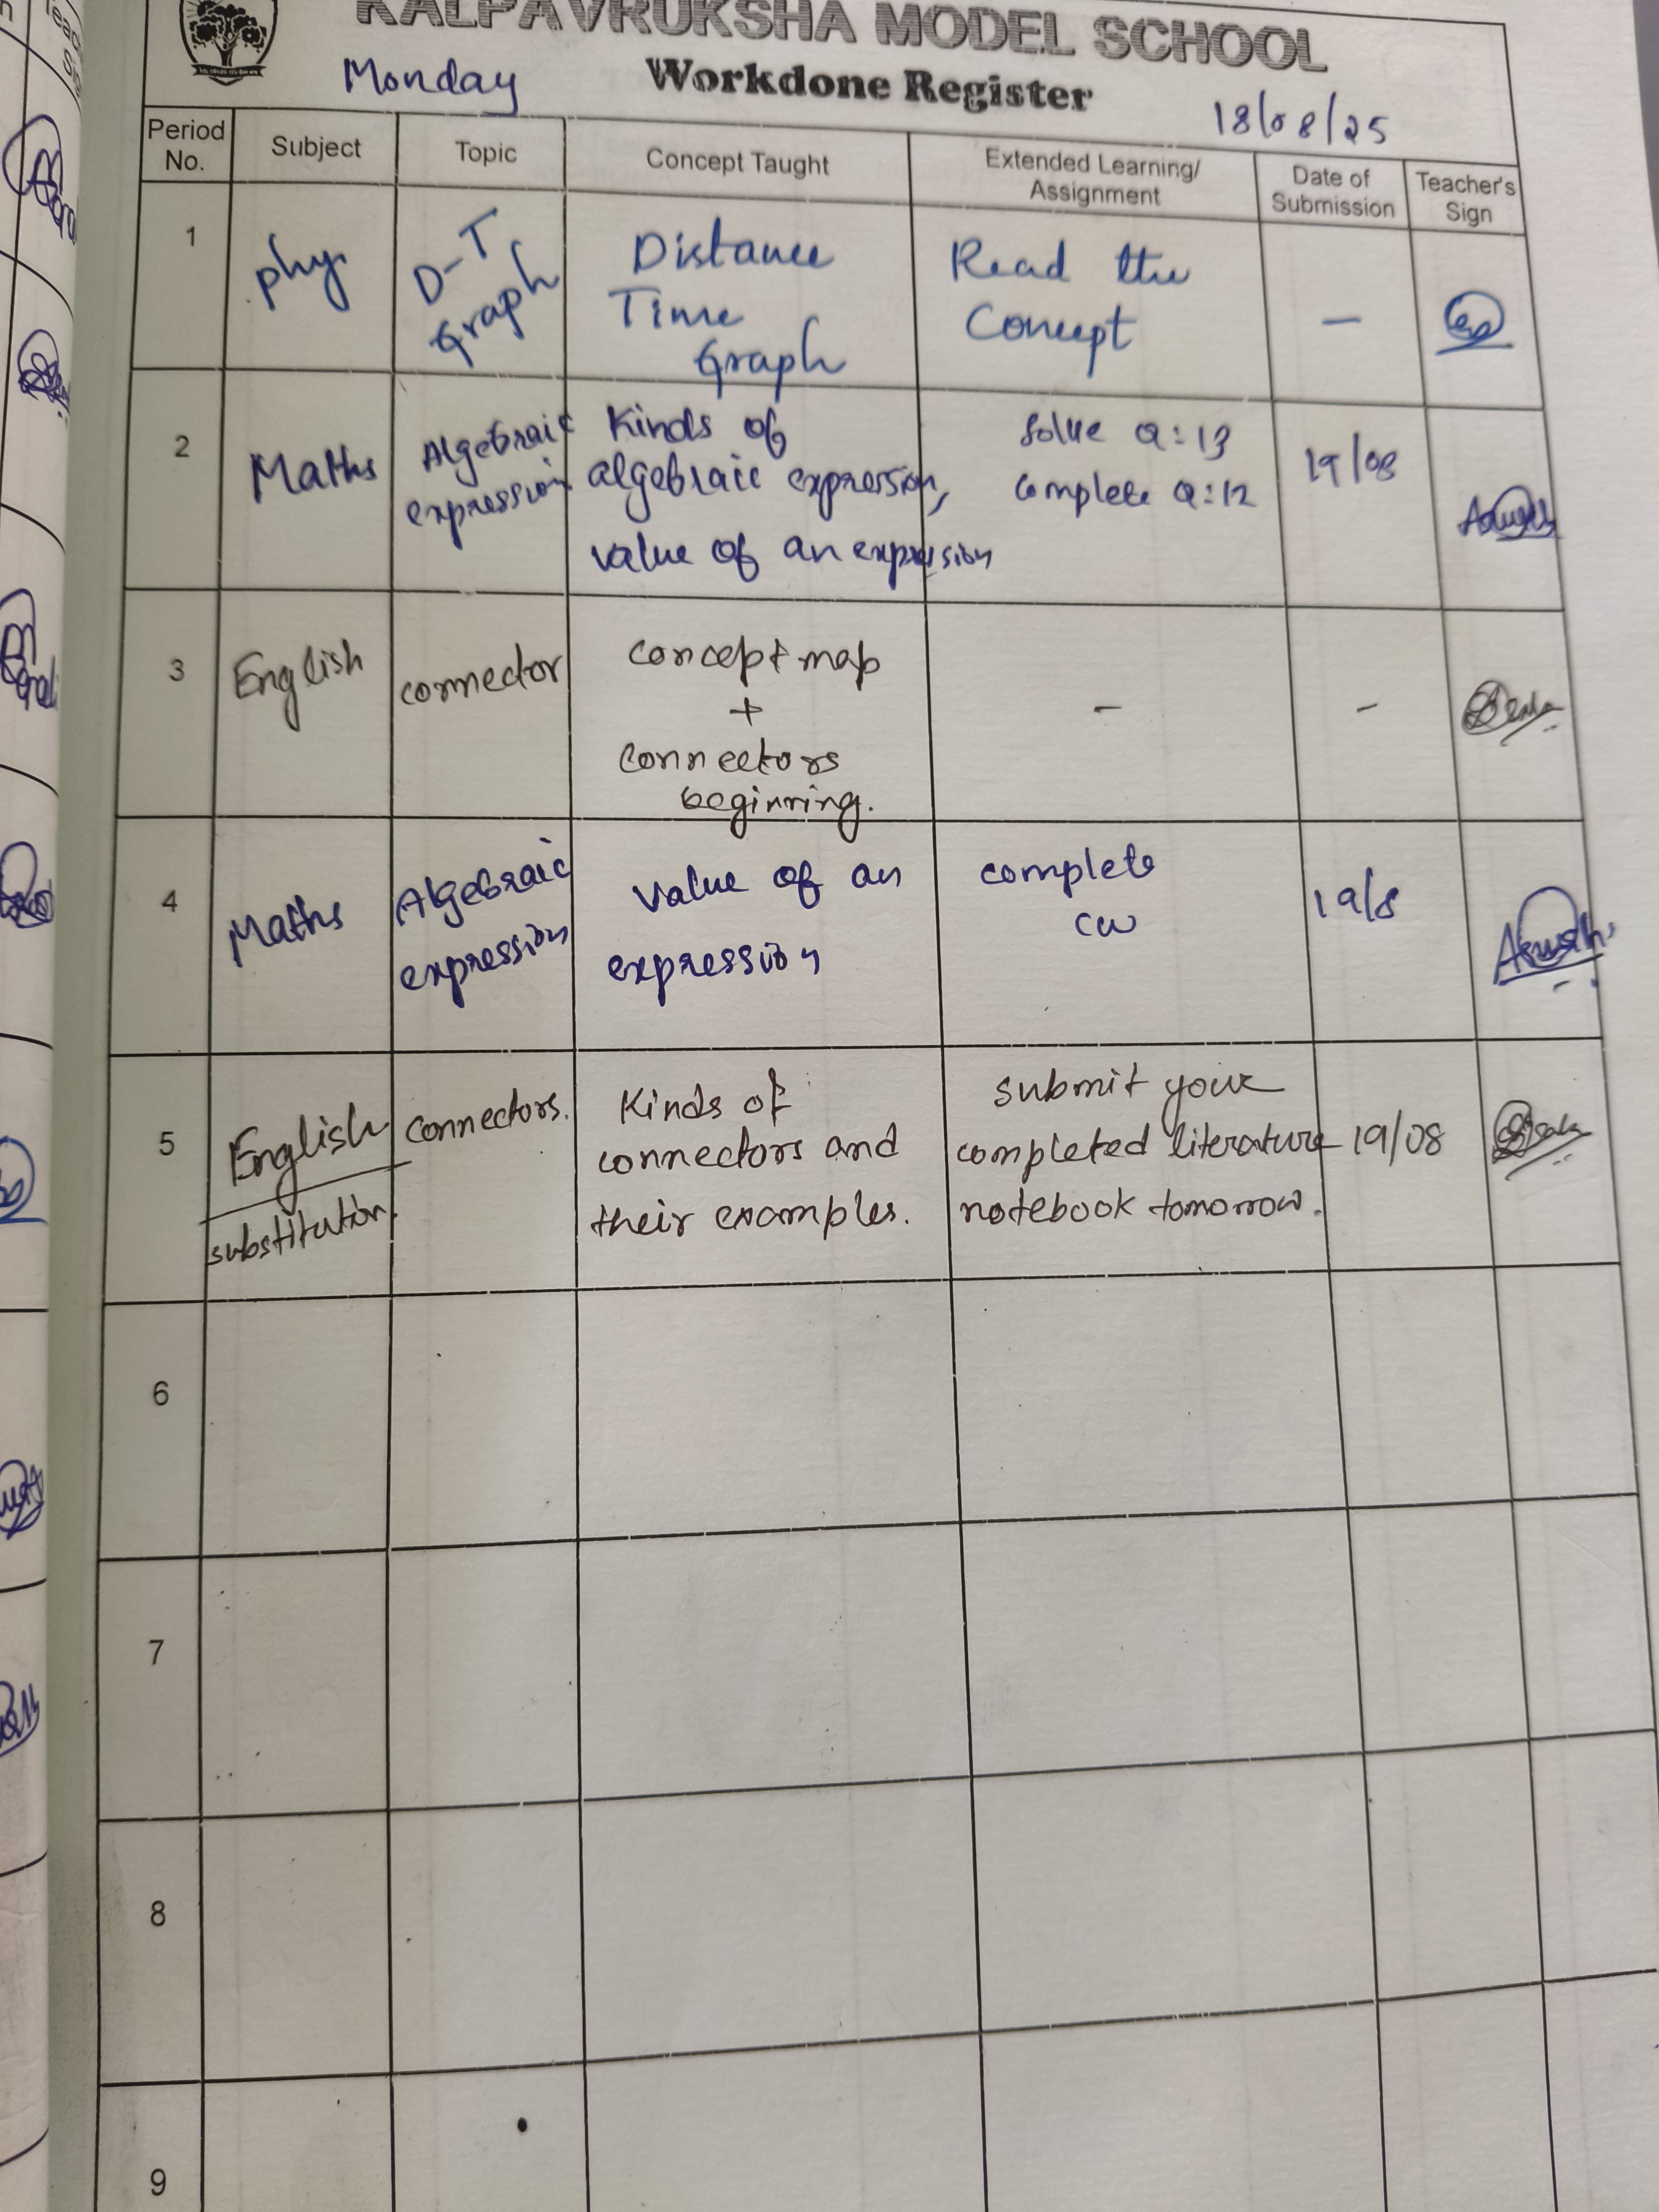 KALPAVRUKSHA MODEL SCHOOL
Monday
Workdone Register
18/08/25
Period No.
Subject
Topic
Concept Taught
Extended Learning/
Assignment
Date of
Submission
Teacher's
Sign
1
phy.
D-T
Graph
Distance
Time
Graph
Read the
Concept
-
2
Maths
Algebraic
expression
Kinds of
algebraic expression,
value of an expression
Solve Q:13
complete Q:12
19/08
3
English
connector
concept map
+
connectors
beginning.
-
-
4
Maths
Algebraic
expression
value of an
expression
complete
cw
19/8
5
English
substitution.
connectors.
Kinds of
connectors and
their examples.
submit your
completed literature
notebook tomorrow.
19/08
6
7
8
9